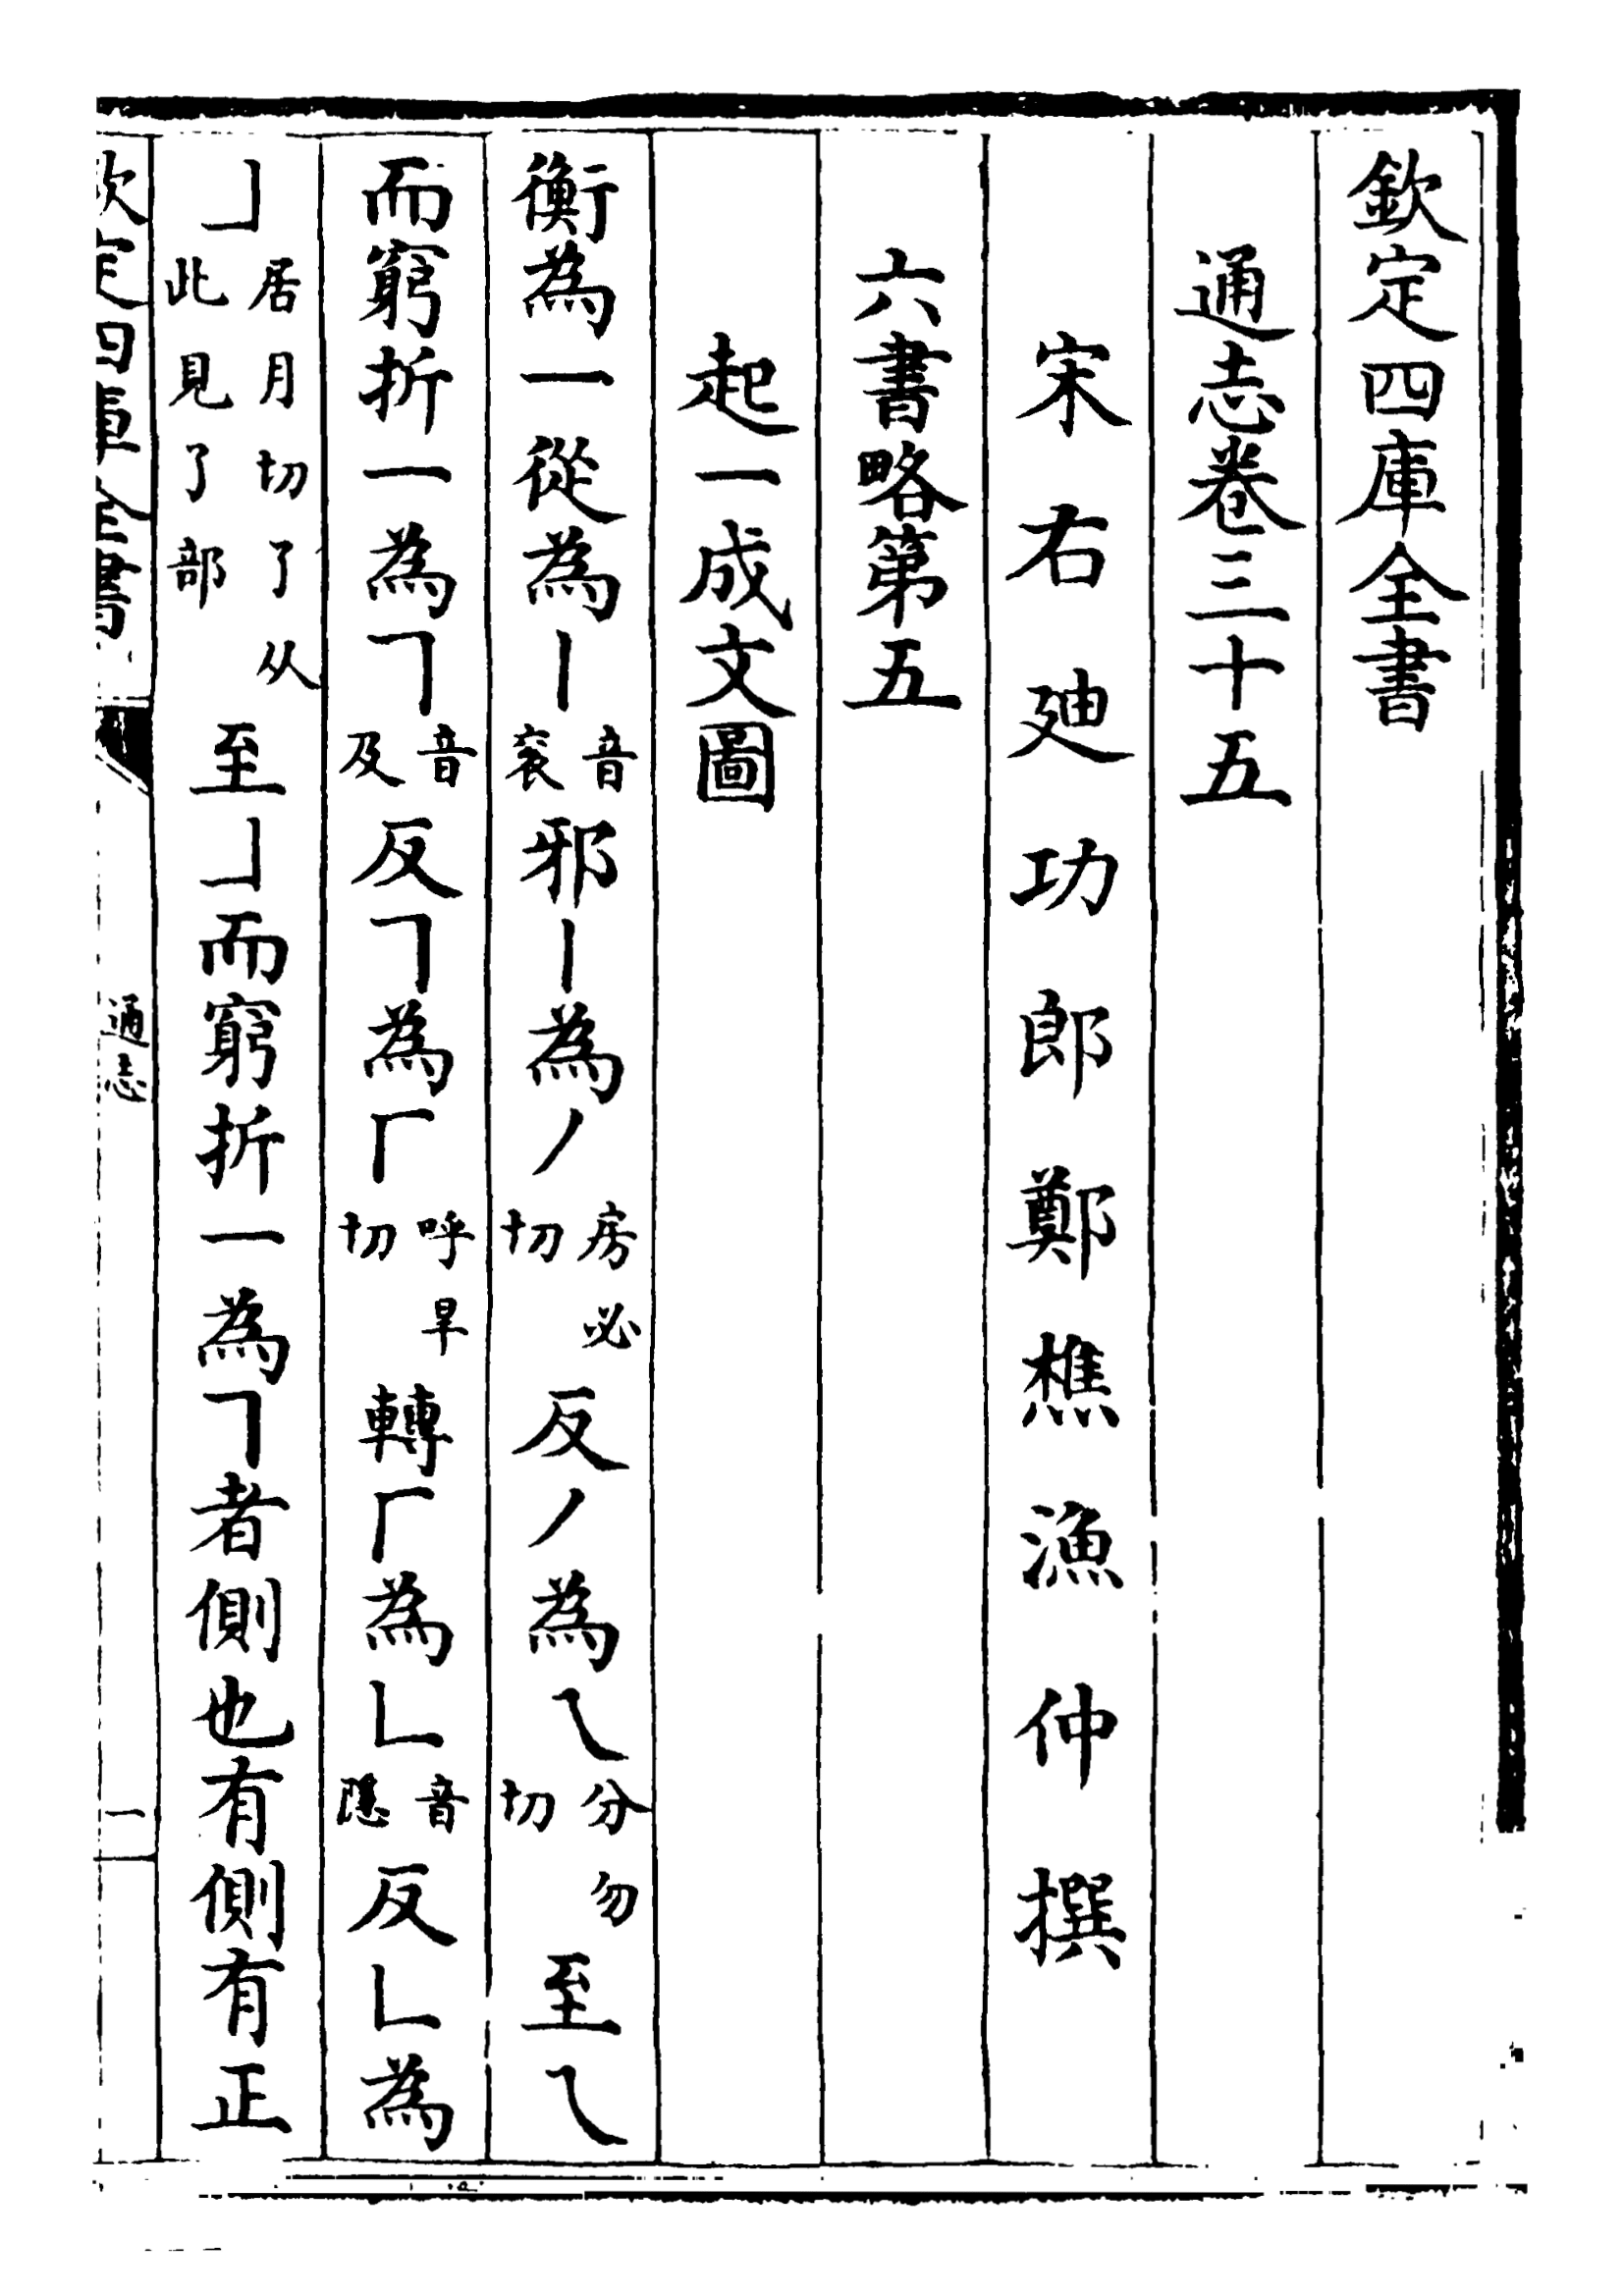 欽定四庫全書
通志卷三十五
宋右迪功郎鄭樵漁仲撰
六書略第五
起一成文圖
衡為一從為丨音衮邪丨為丿房必切反丿為乀分勿切至乀
而窮折一為𠃍音及反𠃍為厂呼旱切轉厂為𠃊音隱反𠃊為
𠄌居月切了从此見了部至𠃎而窮折一為𠃍者側也有側有正
欽定四庫全書
通志
一